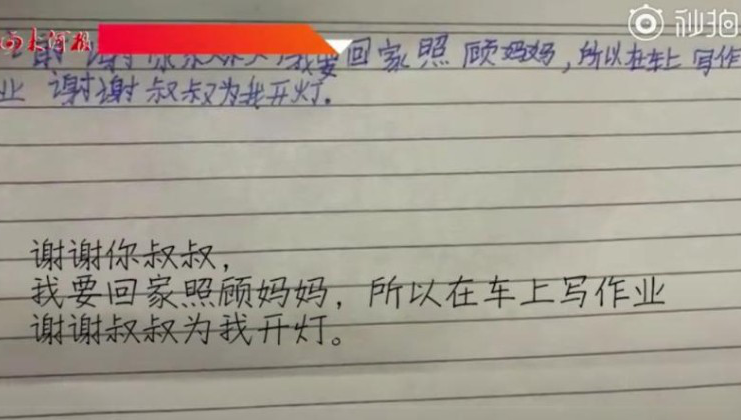 大河报
秒拍
谢谢你叔叔，我要回家照顾妈妈，所以在车上写作
业 谢谢叔叔为我开灯.
谢谢你叔叔，
我要回家照顾妈妈，所以在车上写作业
谢谢叔叔为我开灯。